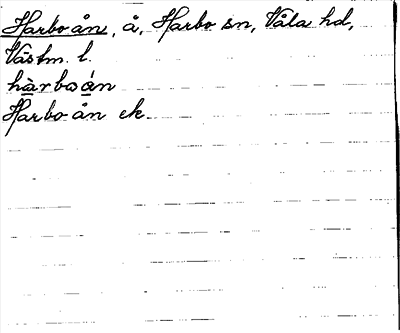 Harboån, å, Harbo sn, Våla hd,
Västm. l.
hàrboån
Harboån ek